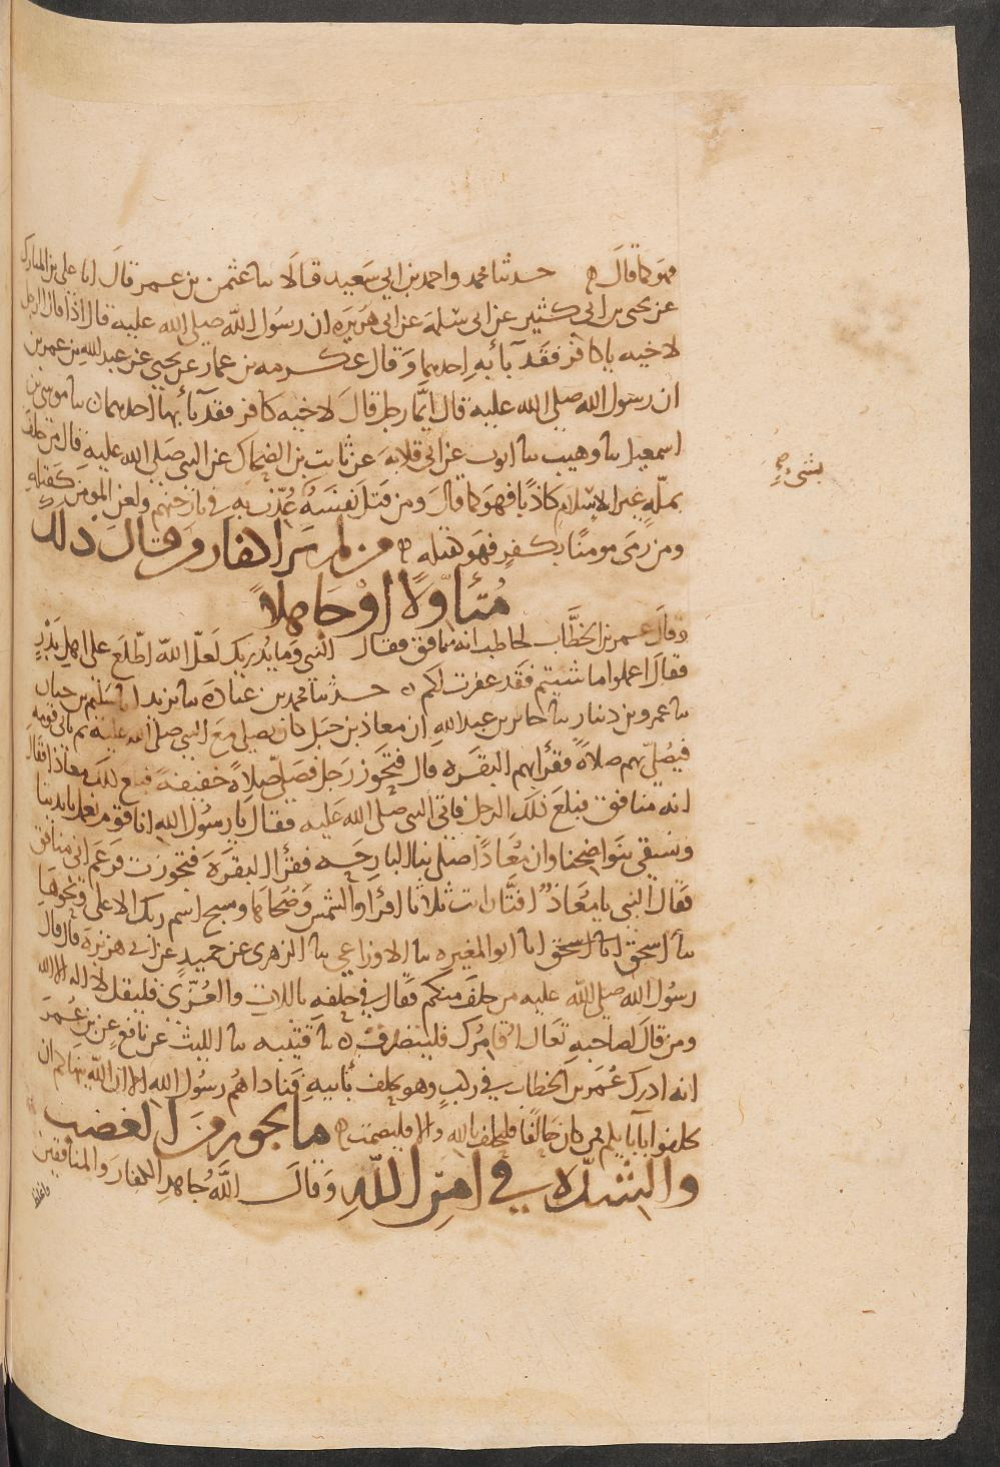 فهو كما قال ه حدثنا محمد واحمد بن ابي سعيد قالا سا عثمن بن عمر قال انا علي بن المبارك
عن يحيى بن ابي كثير عن ابي سلمة عن ابي هريرة ان رسول الله صلى الله عليه قال اذا قال الرجل
لاخيه يا كافر فقد باء به احدهما وقال عكرمه بن عمار عن يحيى عن عبد الله بن
ان رسول الله صلى الله عليه قال ايما رجل قال لاخيه كافر فقد باء بها احدهما ن سا موسى بن
اسمعيل سا وهيب سا ايوب عن ابي قلابة عن ثابت بن الضحاك عن النبي صلى الله عليه قال من حلف
بشيء صح
بملةٍ غير الاسلام كاذبا فهو كما قال ومن قتل نفسه عُذّب به في نار جهنم ولعن المومن كقتله
ومن رمى مومنًا بكفرٍ فهو كقتله ه من لم ير اكفار من قال ذلك
مُتأوّلًا اوْ جاهلًا
وقال عمر بن الخطّاب لحاطب انه منافق فقال النبي وما يُدريك لعلّ الله اطّلع على اهل بَدْرٍ
فقال اعملوا ما شيتم فقد غفرت لكم ه حدثنا محمد بن عبادة سا يزيد انا سليم بن حيان
سا عمرو بن دينار سا جابر بن عبد الله ان معاذ بن جبل كان يصلي مع النبي صلى الله عليه ثم ياتي قومه
فيصلّي بهم صلاةً فقرأ بهم البقره قال فتجوز رجل فصلّى صلاةً خفيفة فبلغ ذلك معاذا فقال
انه منافق فبلغ ذلك الرجل فاتى النبي صلى الله عليه فقال يا رسول الله انا قوم نعمل بايدينا
ونسقي بنواضحنا وان معاذا صلى بنا البارحه فقرأ البقرة فتجوزت فزعم اني منافق
فقال النبي يا معاذ افتّان انت ثلاثا اقرا والشمس وضحاها وسبح اسم ربك الاعلى ونحوها
سا اسحق انا ابو المغيره سا الاوزاعي سا الزهرى عن حميد عن ابي هريرة قال قال
رسول الله صلى الله عليه من حلف منكم فقال في حلفه باللات والعُزّى فليقل لا اله الا الله
ومن قال لصاحبه تعال اُقامرك فليتصدق ه سا قتيبه سا الليث عن نافع عن بن عمر
انه ادرك عُمر بن الخطاب في ركب وهو يحلف بأبيه فناداهم رسول الله الا ان الله ينهاكم ان
تحلفوا بابائكم فمن كان حالفًا فليحلف بالله والا فليصمت ه ما يجوز من الغضب
والشدّه في امر اللّهِ وقال اللَّهُ جاهد الكفار والمنافقين
واغلظ